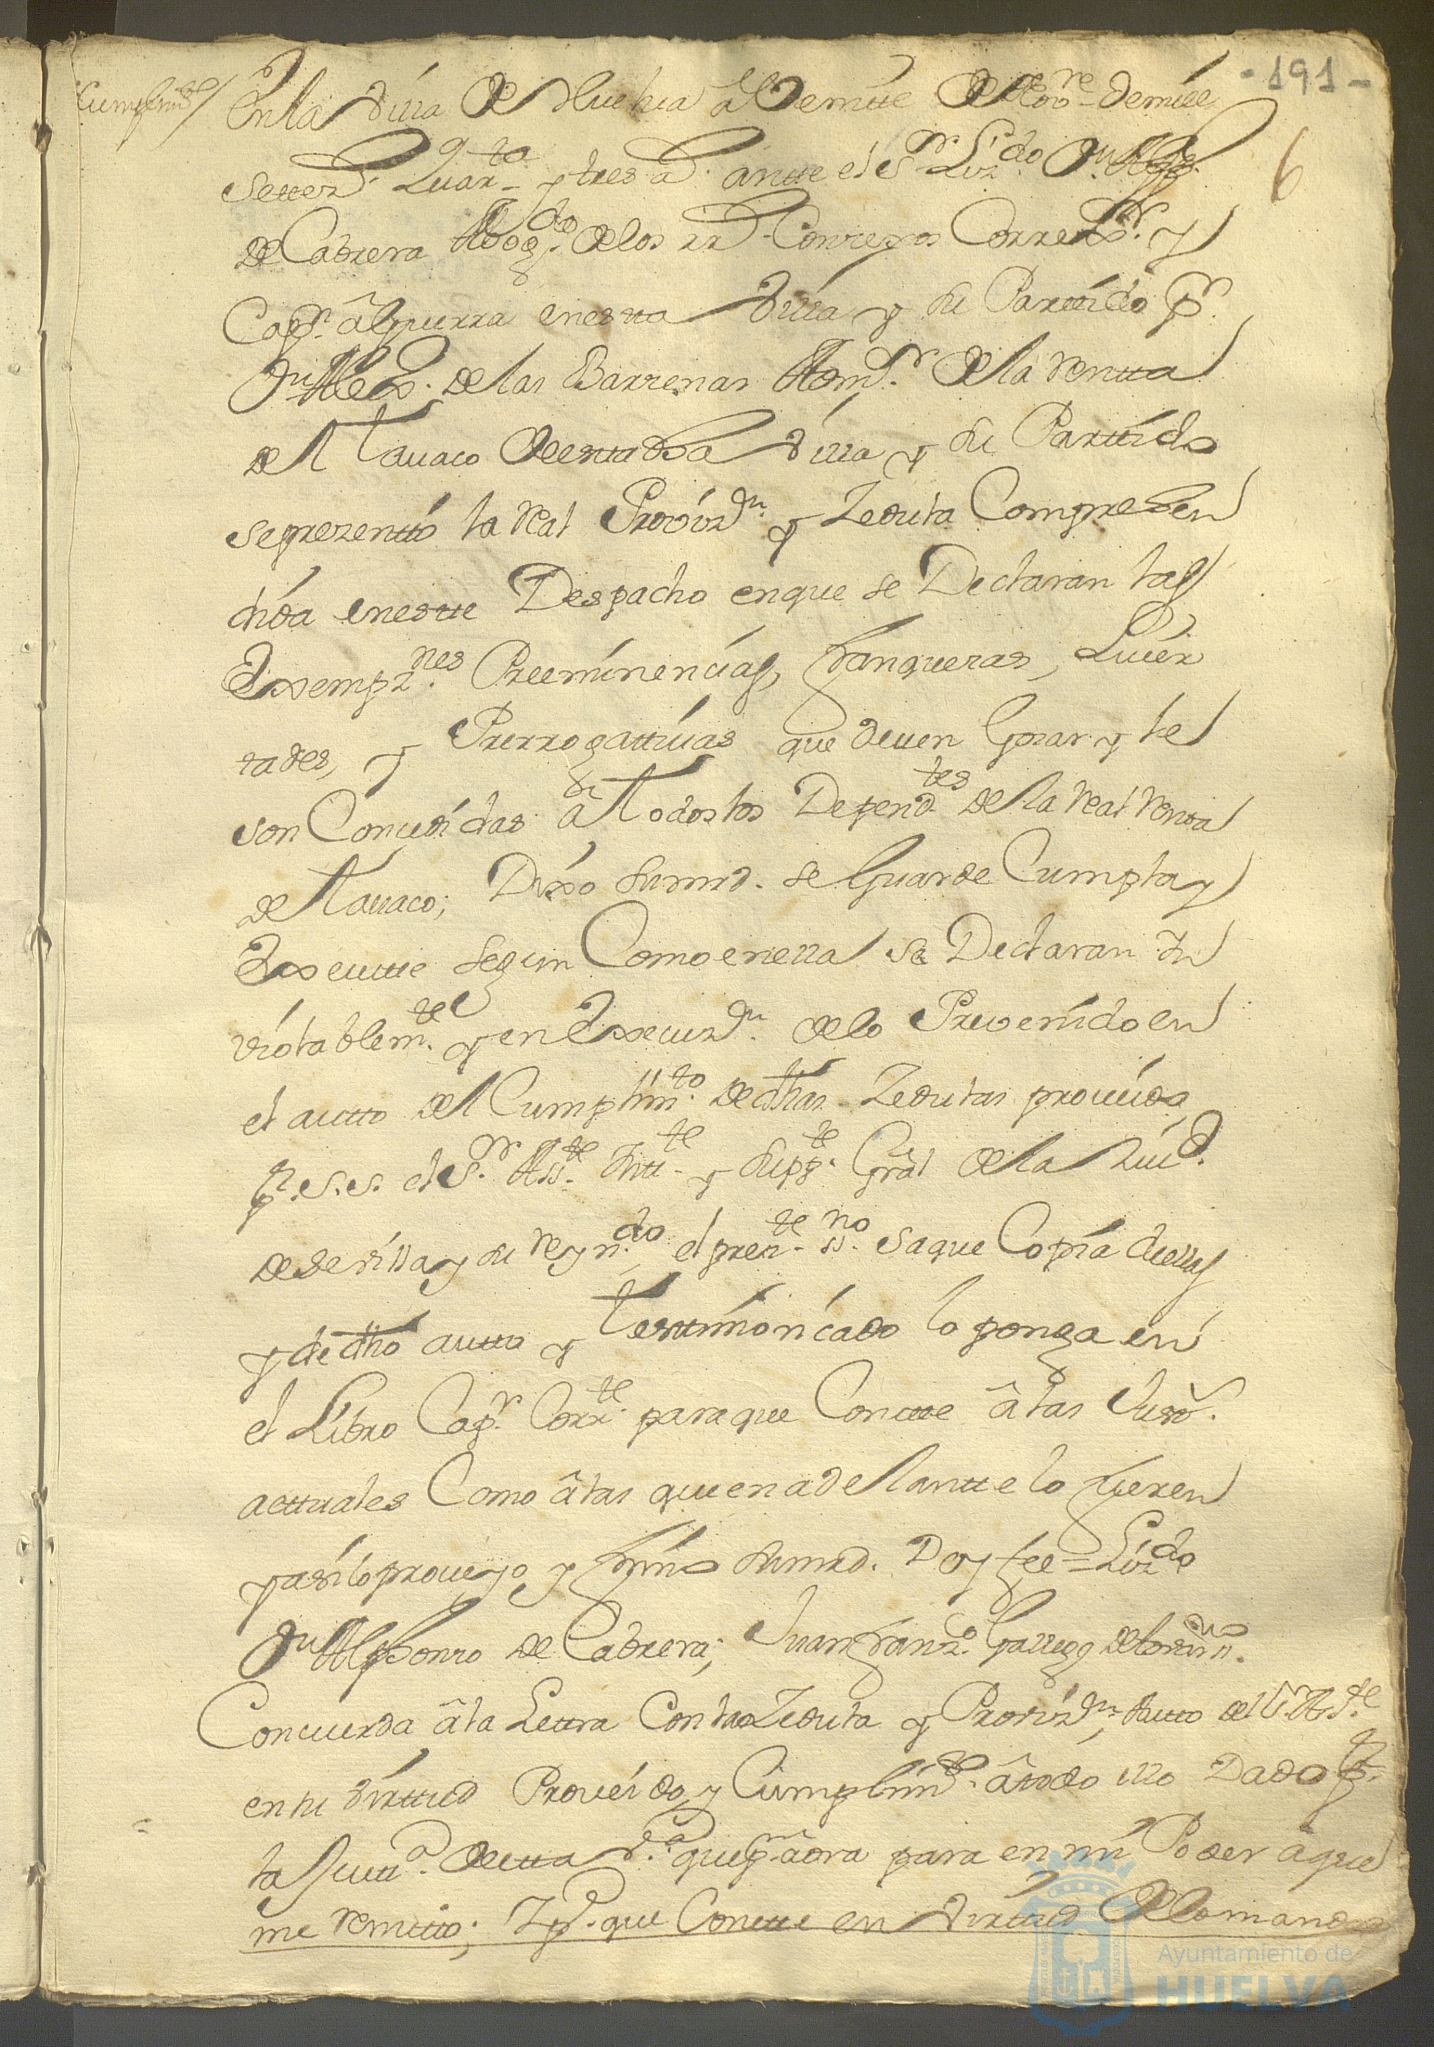 -191-
6
Cumplimto/ En la Villa de Huelva a Veinte de Nove. de mill
Settezs. Quarta. y tres as. antte el Sr. Lizdo. Dn. Alpho.
de Cabrera Abogdo. de los Rs. Consejos Corregor. y
Capn. â guerra en esta Villa y su Parttido pr.
Dn. Alexo. de las Barrenas Admor. de la Rentta
del Tavaco de esta dha Villa y su Parttido
se prezenttó la Real Provizn. y Zedula Comprehen
dida en estte Despacho en que se Declaran las
Exempznes. Preeminencias, franquezas, Liver
tades, y Prerrogattivas que deven Gozar y le
son Concedidas â Todos los Dependtes. de la Real Renta
de Tavaco; Dixo su mrd. se Guarde Cumpla y
Executte segun Como en ella se Declaran In
violablemte. y en Execuzn. de lo Prevenido en
el autto del Cumplimto. de dhas Zedulas proveido
pr. S. S. el Sr. Asste. Intte. y Supte. Gral de la Ciud.
de Sevilla y su Reyndo. el prezte. ssno. saque Copia de ellas
y de dho autto y Testimoniado lo ponga en
el Libro Capr. Corrte. para que Constte â las Justs.
acttuales Como â las que en adelantte lo fueren
y asi lo proveyo y firmó su mrd. Doy fee = Lizdo.
Dn. Alphonso de Cabrera; Juan Franzo. Gallego
Concuerda â la Lettra Con las Zedula y Provizn. Autto del Sr. Asste.
en su Virttud Proveido, y Cumplimto. â todo ello Dado pr.
la Justta. de esta Va. que pr. aora para en mi Poder a que
me remitto; Y pa. que Constte en Virttud de lo mandado
Ayuntamiento de
HUELVA